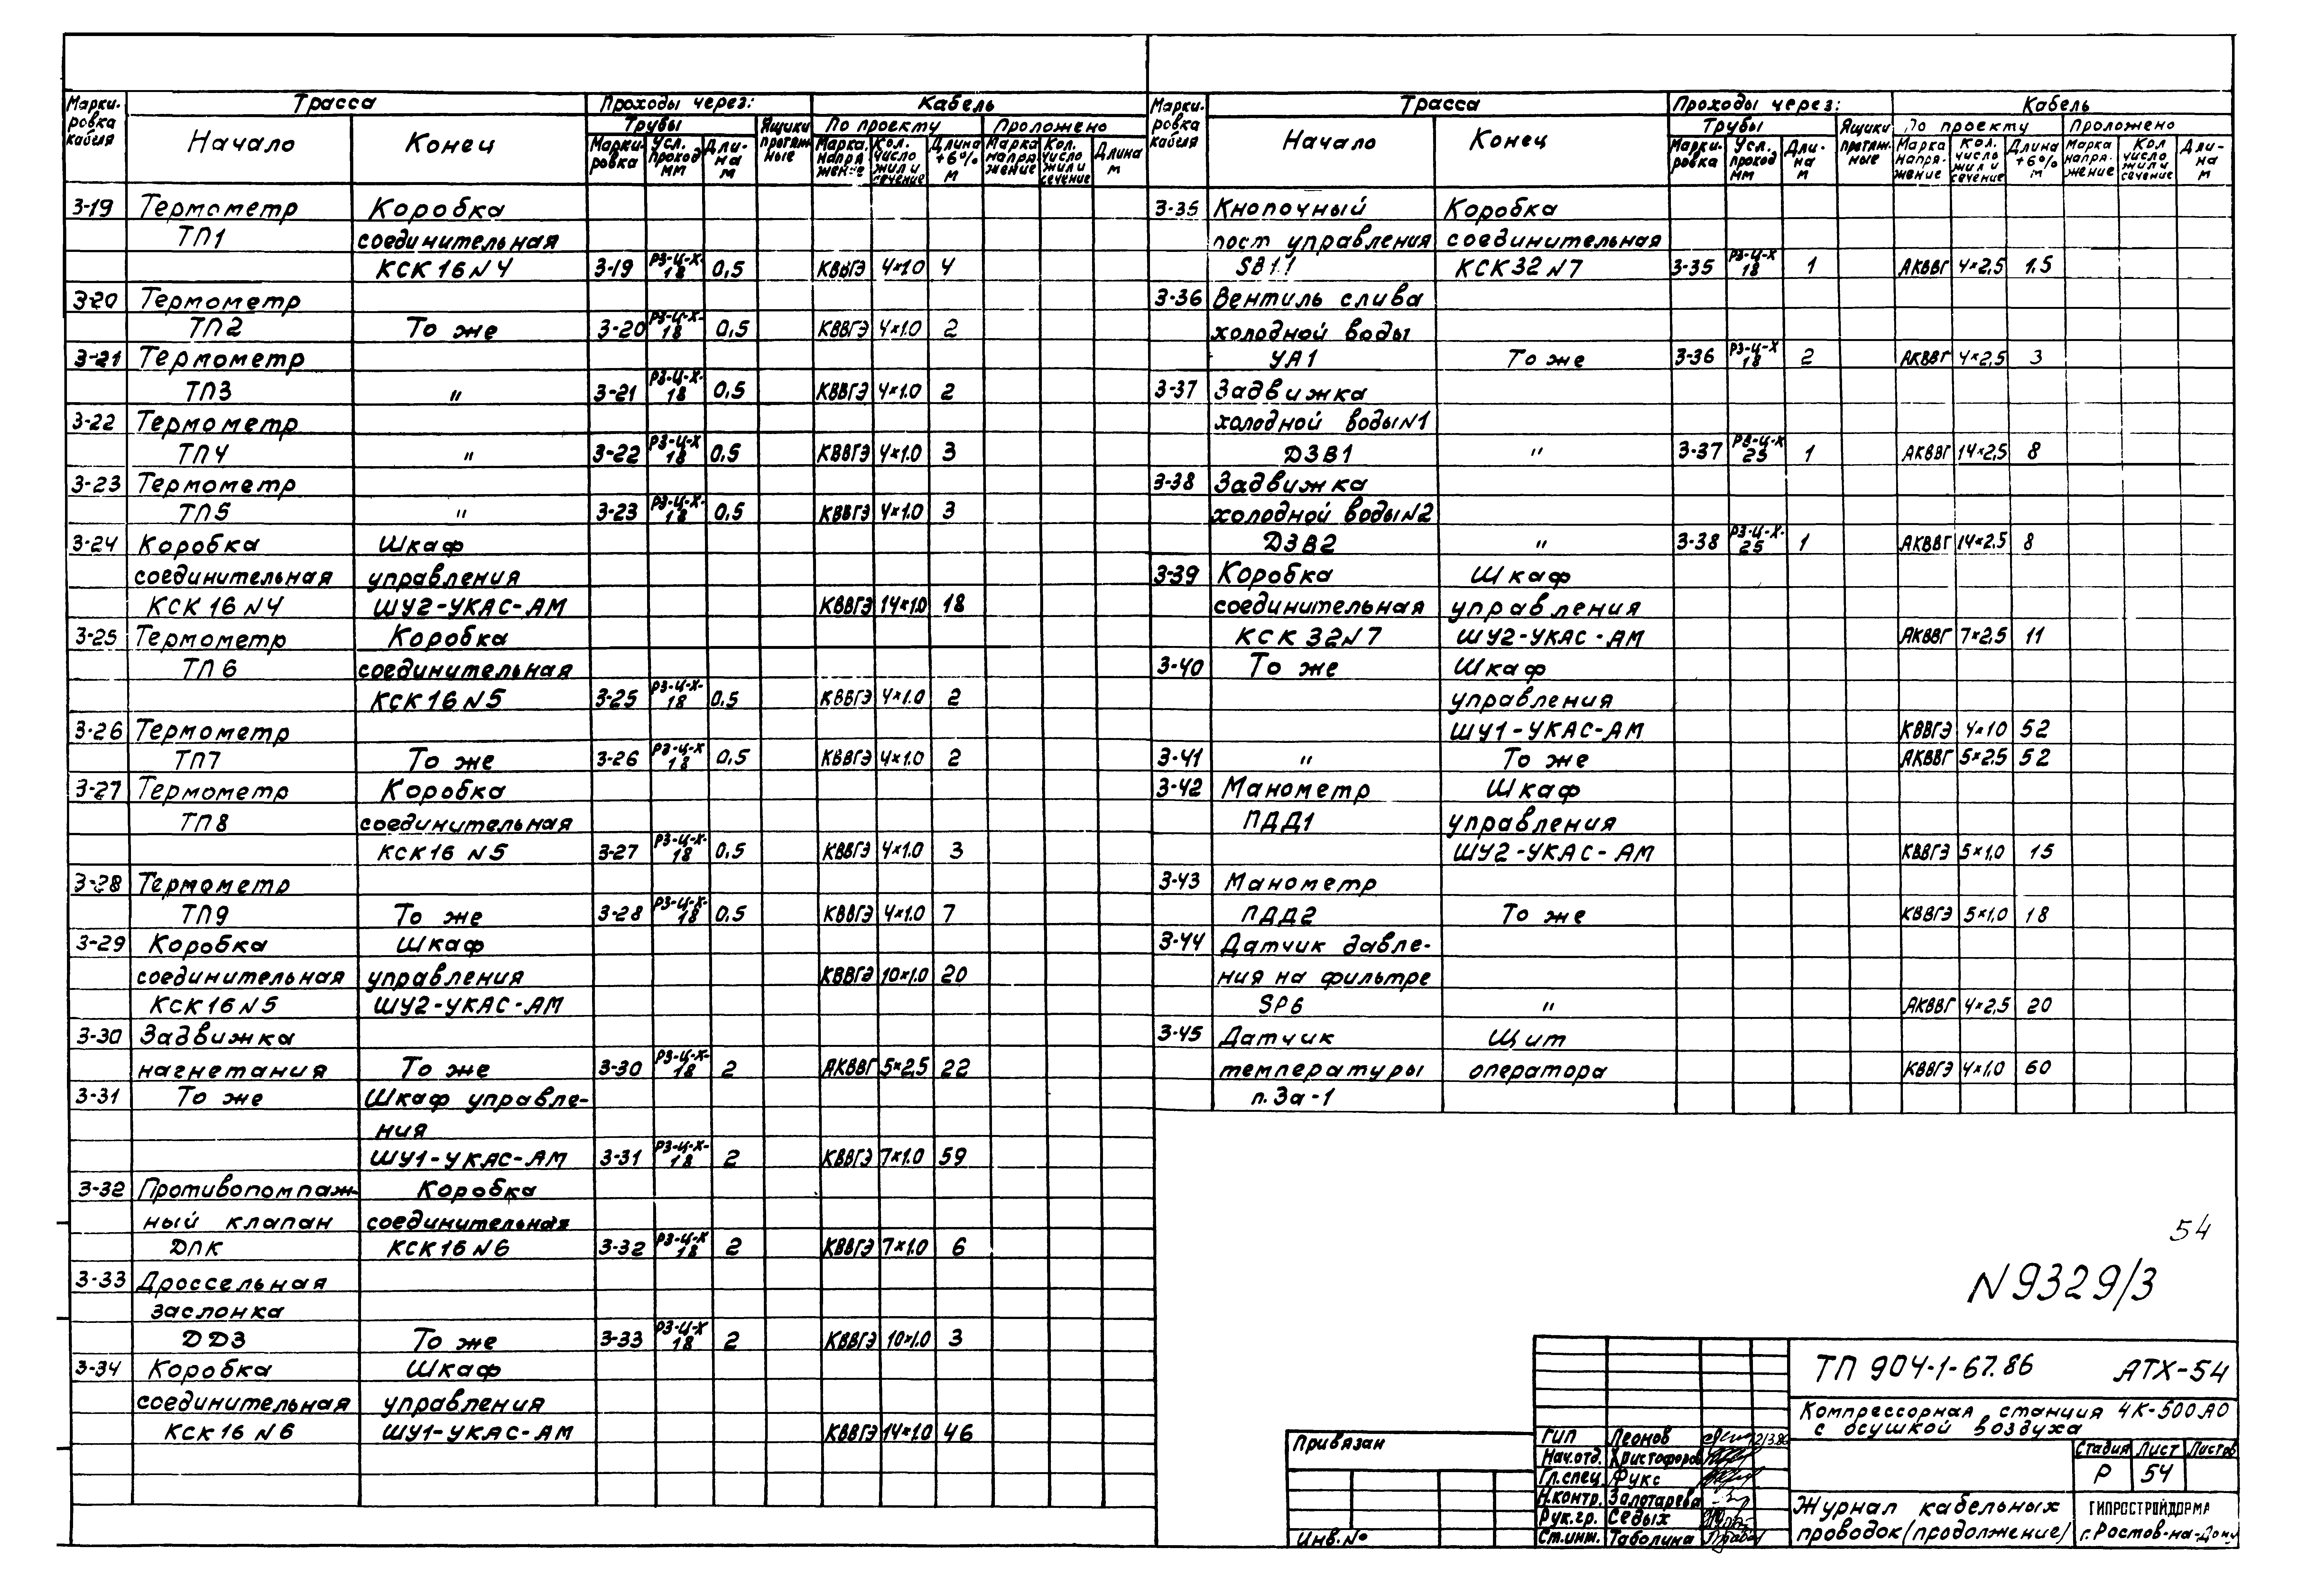 Марки-ровка кабеля | Трасса | Проходы через: | Кабель
Начало | Конец | Трубы | Ящики протяж-ные | По проекту | Проложено
Марки-ровка | Усл. проход мм | Дли-на м | Марка, напря жение | Кол. число жил и сечение | Длина +6% м | Марка напря-жение | Кол. число жил и сечение | Длина м
3-19 Термометр Коробка
ТП1 соединительная
КСК16N4 3-19 РЗ-Ц-Х-18 0,5 КВВГЭ 4×1.0 4
3-20 Термометр
ТП2 То же 3-20 РЗ-Ц-Х-18 0,5 КВВГЭ 4×1.0 2
3-21 Термометр
ТП3 " 3-21 РЗ-Ц-Х-18 0,5 КВВГЭ 4×1.0 2
3-22 Термометр
ТП4 " 3-22 РЗ-Ц-Х 18 0,5 КВВГЭ 4×1.0 3
3-23 Термометр
ТП5 " 3-23 РЗ-Ц-Х-18 0,5 КВВГЭ 4×1.0 3
3-24 Коробка Шкаф
соединительная управления
КСК16N4 ШУ2-УКАС-АМ КВВГЭ 14×1.0 18
3-25 Термометр Коробка
ТП6 соединительная
КСК16N5 3-25 РЗ-Ц-Х-18 0,5 КВВГЭ 4×1.0 2
3-26 Термометр
ТП7 То же 3-26 РЗ-Ц-Х 18 0,5 КВВГЭ 4×1.0 2
3-27 Термометр Коробка
ТП8 соединительная
КСК16 N5 3-27 РЗ-Ц-Х-18 0,5 КВВГЭ 4×1.0 3
3-28 Термометр
ТП9 То же 3-28 РЗ-Ц-Х-18 0,5 КВВГЭ 4×1.0 7
3-29 Коробка Шкаф
соединительная управления КВВГЭ 10×1.0 20
КСК16N5 ШУ2-УКАС-АМ
3-30 Задвижка
нагнетания То же 3-30 РЗ-Ц-Х-18 2 АКВВГ 5×2,5 22
3-31 То же Шкаф управле-
ния
ШУ1-УКАС-АМ 3-31 РЗ-Ц-Х-18 2 КВВГЭ 7×1.0 59
3-32 Противопомпаж- Коробка
ный клапан соединительная
ДПК КСК16N6 3-32 РЗ-Ц-Х 18 2 КВВГЭ 7×1.0 6
3-33 Дроссельная
заслонка
ДДЗ То же 3-33 РЗ-Ц-Х 18 2 КВВГЭ 10×1.0 3
3-34 Коробка Шкаф
соединительная управления
КСК16 N6 ШУ1-УКАС-АМ КВВГЭ 14×1.0 46
Марки-ровка кабеля | Трасса | Проходы через: | Кабель
Начало | Конец | Трубы | Ящики протяж-ные | По проекту | Проложено
Марки-ровка | Усл. проход мм | Дли-на м | Марка напря-жение | Кол. число жил и сечение | Длина +6% м | Марка напря-жение | Кол число жил и сечение | Дли-на м
3-35 Кнопочный Коробка
пост управления соединительная
SB11 КСК32N7 3-35 РЗ-Ц-Х 18 1 АКВВГ 4×2,5 1,5
3-36 Вентиль слива
холодной воды
УА1 То же 3-36 РЗ-Ц-Х 18 2 АКВВГ 4×2,5 3
3-37 Задвижка
холодной водыN1
ДЗВ1 " 3-37 РЗ-Ц-Х 25 1 АКВВГ 14×2,5 8
3-38 Задвижка
холодной водыN2
ДЗВ2 " 3-38 РЗ-Ц-Х-25 1 АКВВГ 14×2,5 8
3-39 Коробка Шкаф
соединительная управления
КСК32N7 ШУ2-УКАС-АМ АКВВГ 7×2,5 11
3-40 То же Шкаф
управления
ШУ1-УКАС-АМ КВВГЭ 4×1.0 52
3-41 " То же АКВВГ 5×2.5 52
3-42 Манометр Шкаф
ПДД1 управления
ШУ2-УКАС-АМ КВВГЭ 5×1,0 15
3-43 Манометр
ПДД2 То же КВВГЭ 5×1,0 18
3-44 Датчик давле-
ния на фильтре
SP6 " АКВВГ 4×2,5 20
3-45 Датчик Щит
температуры оператора КВВГЭ 4×1,0 60
п.3а-1
54
N9329/3
ТП 904-1-67.86 АТХ-54
Компрессорная станция 4К-500АО
с осушкой воздуха
Стадия Лист Листов
Р 54
Журнал кабельных
проводок (продолжение)
ГИПРОСТРОЙДОРМАШ
г.Ростов-на-Дону
Привязан
Инв.№
ГИП Леонов
Нач.отд. Христофоров
Гл.спец. Фукс
Н.контр. Золотарева
Рук.гр. Седых
Ст.инж. Таболина